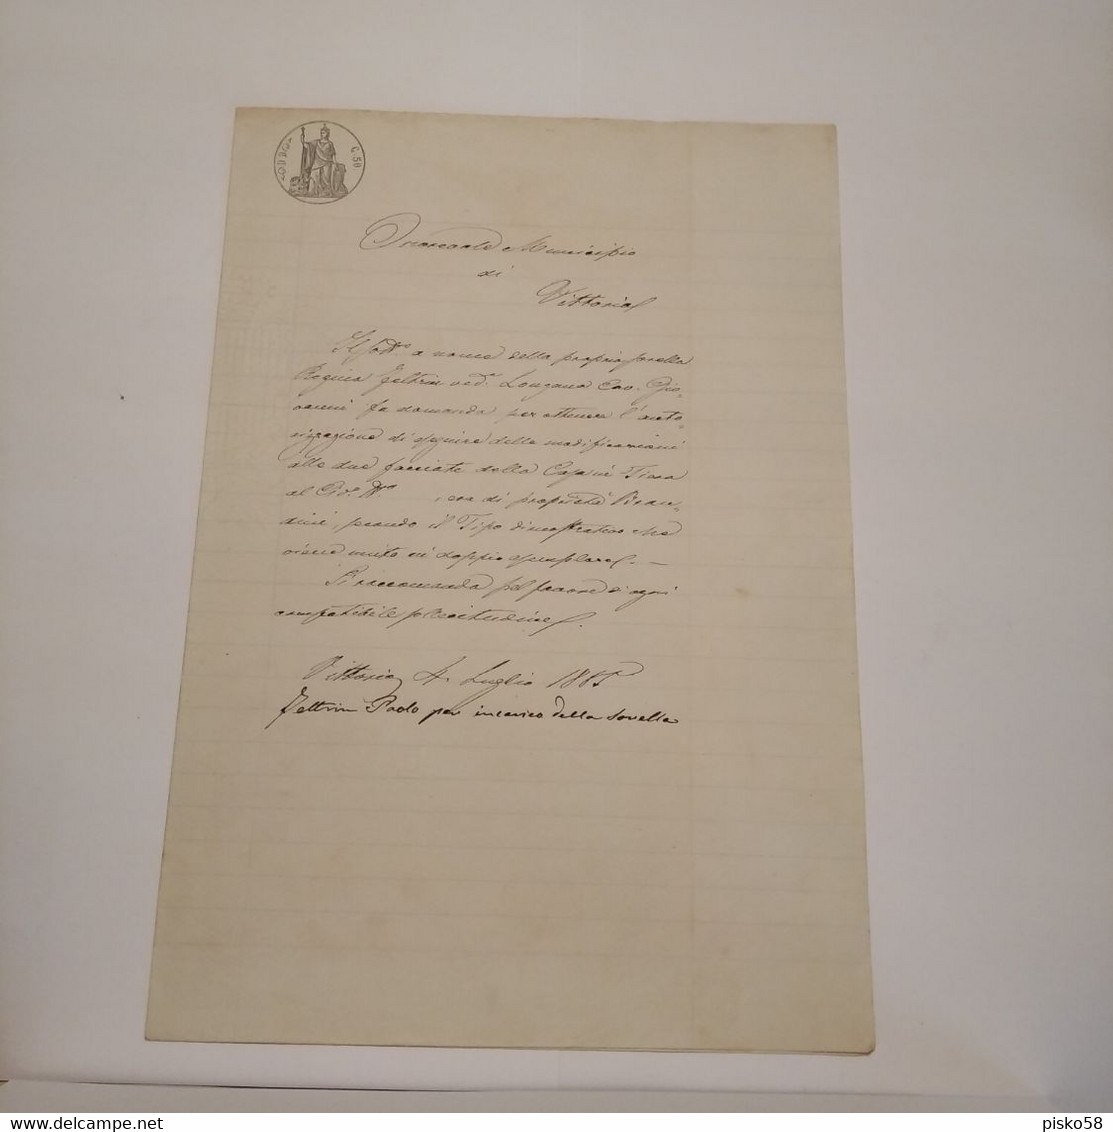 C. 50
Onorevole Municipio
di
Vittorio
Il sott.º a nome della propria sorella
Regina Feltrin ved.ª Longana Cav. Gio-
vanni fa domanda per ottenere l'auto-
rizzazione di eseguire delle modificazioni
alle due facciate della Casa in
al Civ. Nº , era di proprietà Bran-
dini, secondo il Tipo dimostrativo che
viene unito in doppio esemplare. —
Si raccomanda pel favore d'ogni
compatibile sollecitudine.
Vittorio 4 Luglio 1885
Feltrin Paolo per incarico della sorella
www.delcampe.net
pisko58